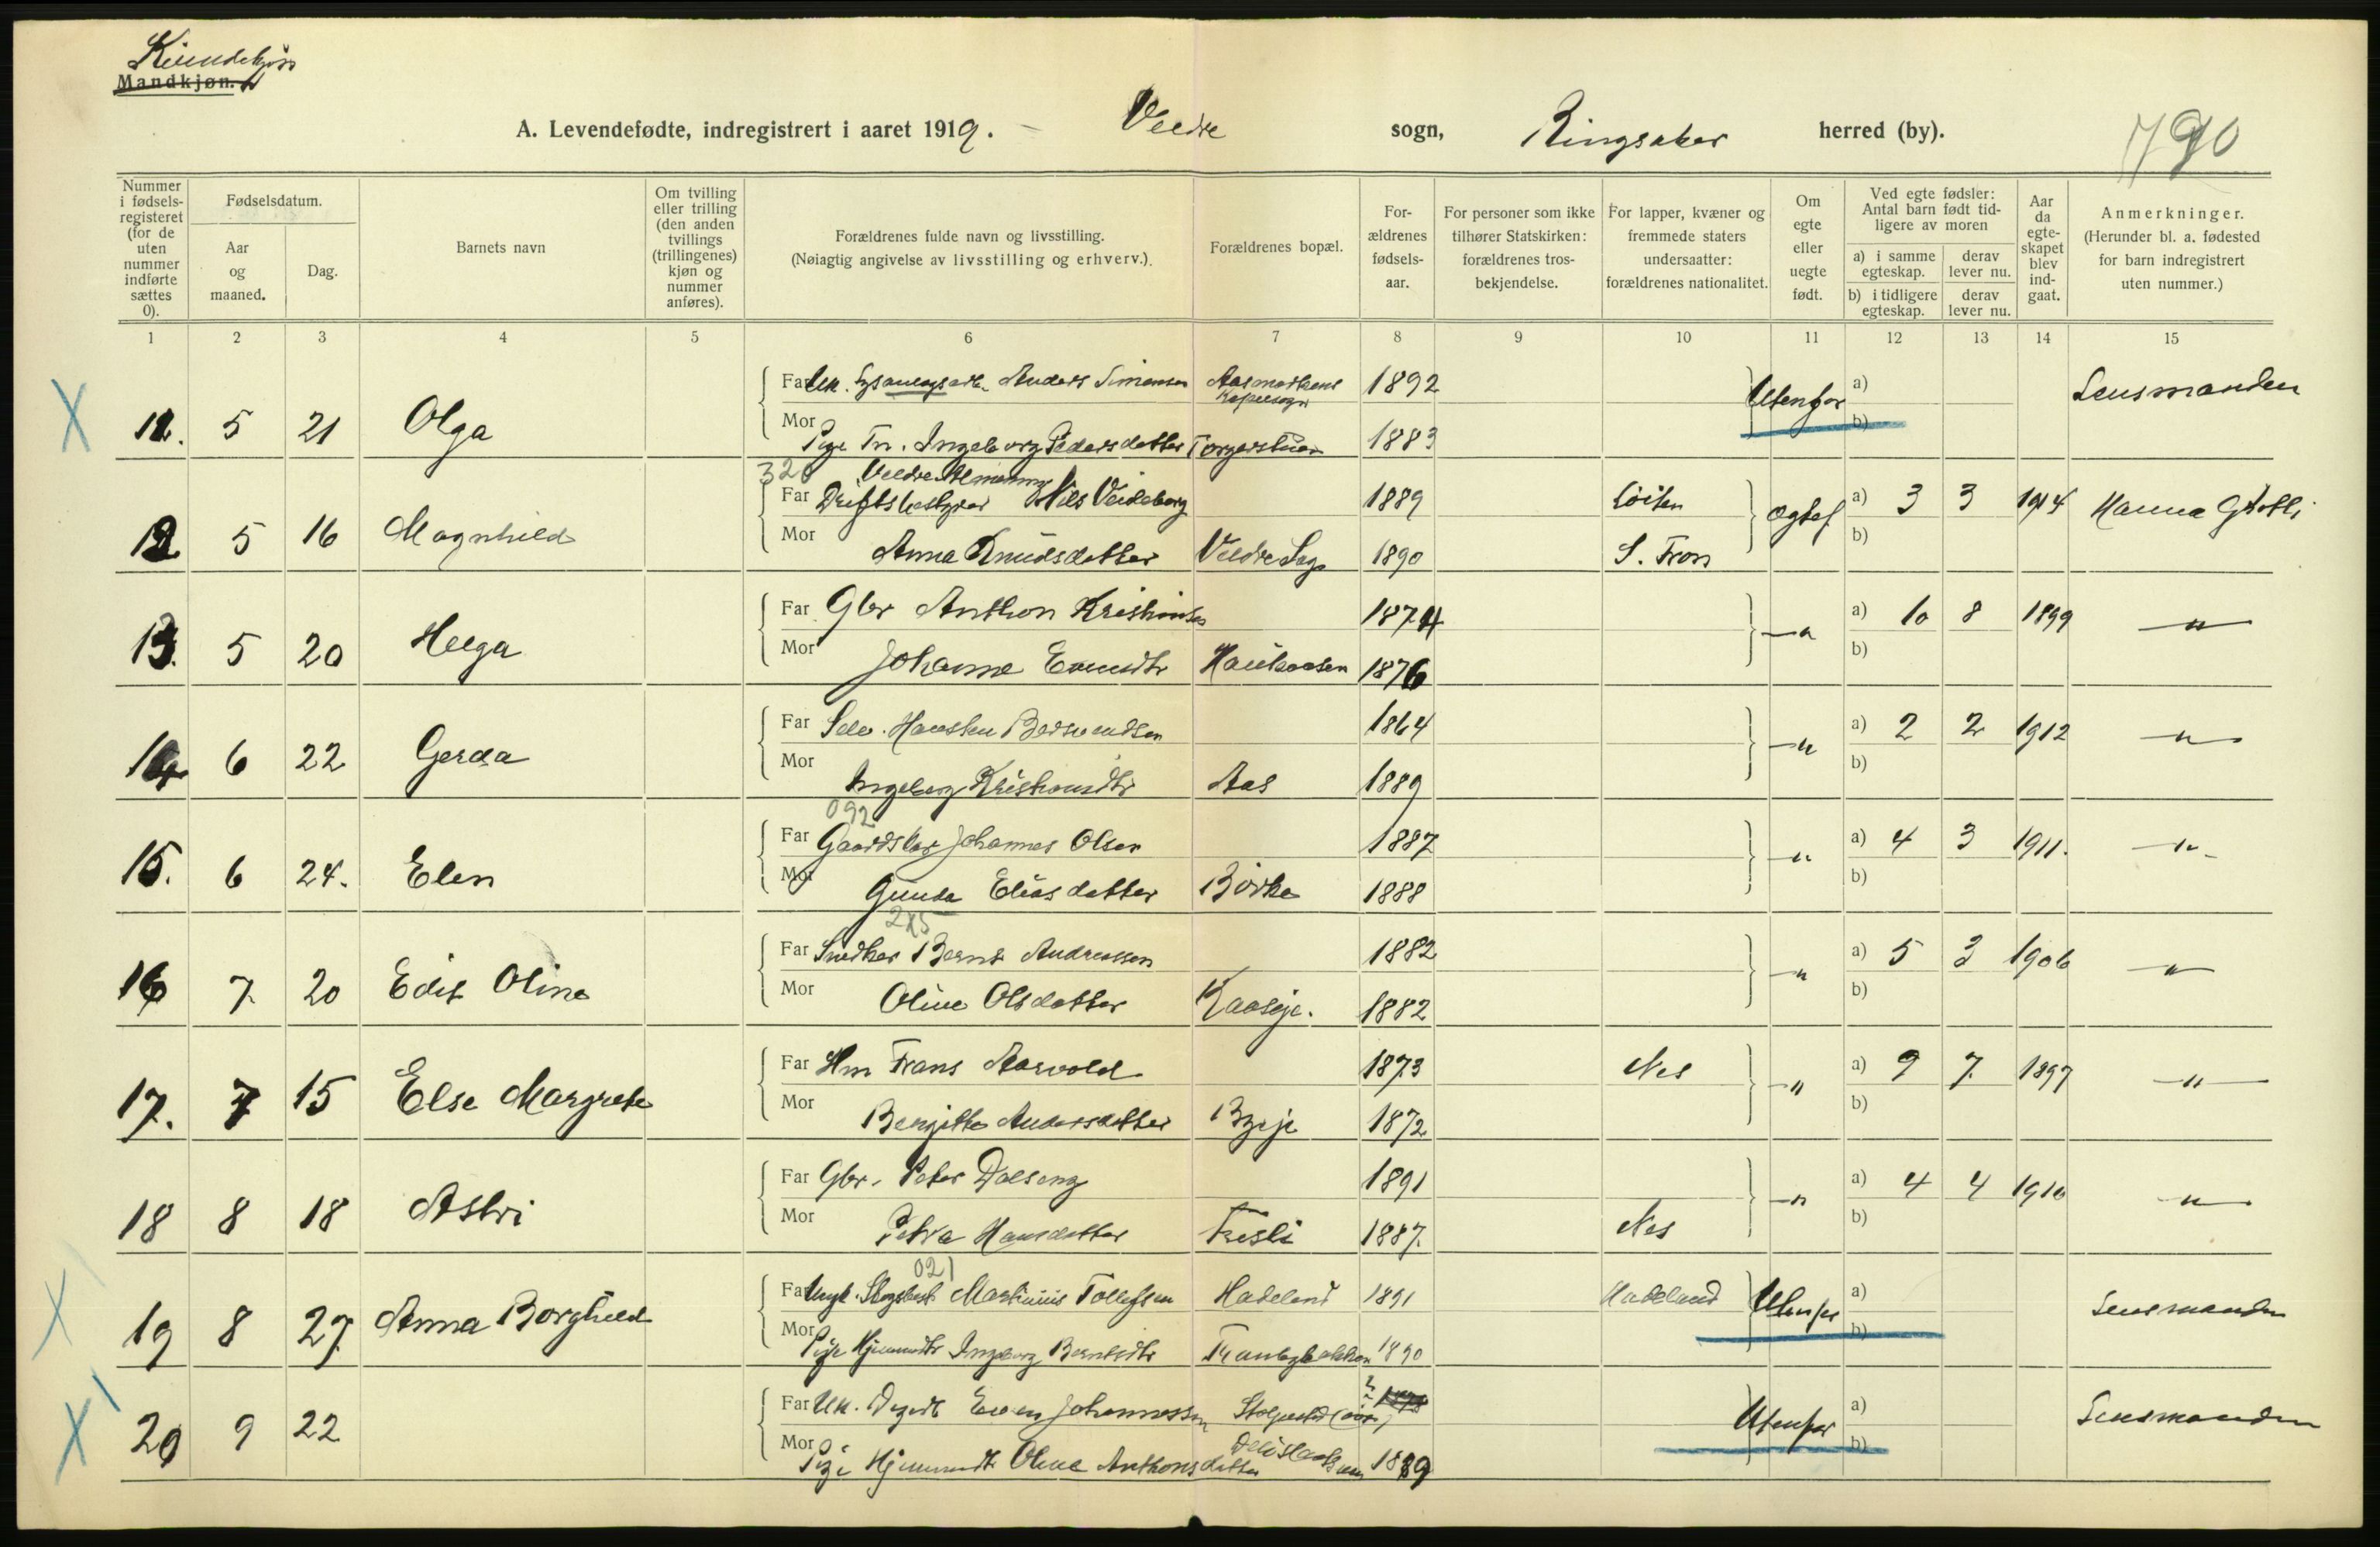 Kvindekjøn
Mandkjøn.
A. Levendefødte, indregistrert i aaret 1919. Veldre sogn, Ringsaker herred (by). 790
Nummer i fødsels-registeret (for de uten nummer indførte sættes 0).
Fødselsdatum.
Aar og maaned.
Dag.
Barnets navn
Om tvilling eller trilling (den anden tvillings (trillingenes) kjøn og nummer anføres).
Forældrenes fulde navn og livsstilling. (Nøiagtig angivelse av livsstilling og erhverv.).
Forældrenes bopæl.
For-ældrenes fødsels-aar.
For personer som ikke tilhører Statskirken: forældrenes tros-bekjendelse.
For lapper, kvæner og fremmede staters undersaatter: forældrenes nationalitet.
Om egte eller uegte født.
Ved egte fødsler: Antal barn født tid-ligere av moren
a) i samme egteskap. derav lever nu.
b) i tidligere egteskap. derav lever nu.
Aar da egte-skapet blev ind-gaat.
Anmerkninger. (Herunder bl. a. fødested for barn indregistrert uten nummer.)
1 2 3 4 5 6 7 8 9 10 11 12 13 14 15
Far Uk. Anders Simensen Aasmarkens Kapelsogn 1892 Utenfor a) Lensmanden
11. 5 21 Olga Mor Pige Tn. Ingeborg Pedersdatter Torgerstuen 1883 b)
320 Veldre Almenning
Far Driftsbestyrer Nils Veideborg 1889 Löiten Egtef a) 3 3 1914 Hanna Grøtli
12 5 16 Magnhild Mor Anna Knudsdatter Veldre Sag 1890 S. Fron b)
Far Gbr Anthon Kristiansen 1874 —"— a) 10 8 1899 —"—
13. 5 20 Helga Mor Johanne Evensdtr Haukaasen 1876 b)
Far Selv. Berswendsen 1864 —"— a) 2 2 1912 —"—
14 6 22 Gerda Mor Ingeborg Kristiansdtr Aas 1889 b)
092
Far Gaardsbr Johannes Olsen 1887 —"— a) 4 3 1911. —"—
15. 6 24. Elen Mor Gunda Eliasdatter Börke 1888 b)
Far Snedker Bernt Andreassen 1882 —"— a) 5 3 1906 —"—
16 7 20 Edit Oline Mor Oline Olsdatter Kaaseje. 1882 b)
Far Hm Frans Aasvold 1873 Nes —"— a) 9 7 1897 —"—
17. 7 15 Else Margrete Mor Bergitte Andersdatter 1872 b)
Far Gbr. Peter Dalseng 1891 —"— a) 4 4 1910 —"—
18 8 18 Astri Mor Petra Hansdatter Fresli 1887. Nes b)
021
Far Ungk. Martinius Tollefsen Hadeland 1891 Hadeland Utenfor a) Lensmanden
19 8 27 Anna Borghild Mor Pige Hjemmedtr Ingeborg Berntsdtr Tranbergbakken 1890 b)
Far Uk. Even Johannessen Utenfor a) Lensmanden
20 9 22 Mor Pige Hjemmedtr Oline Anthonsdatter 1889 b)